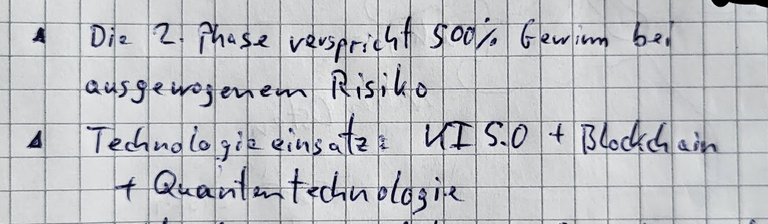 ▲ Die 2. Phase verspricht 500% Gewinn bei
ausgewogenem Risiko
▲ Technologieeinsatz: KI 5.0 + Blockchain
+ Quantentechnologie